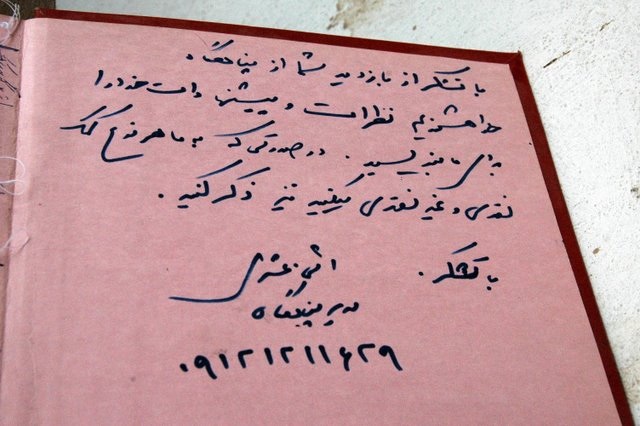 با تشکر از بازدید شما از پناهگاه
خواهشمندیم نظرات و پیشنهادات خود را
برای ما بنویسید. در صورتی که به ما هر نوع کمک
نقدی و غیر نقدی میکنید نیز ذکر کنید.
با تشکر.
مدیر پناهگاه
۰۹۱۲۱۲۱۱۶۲۹